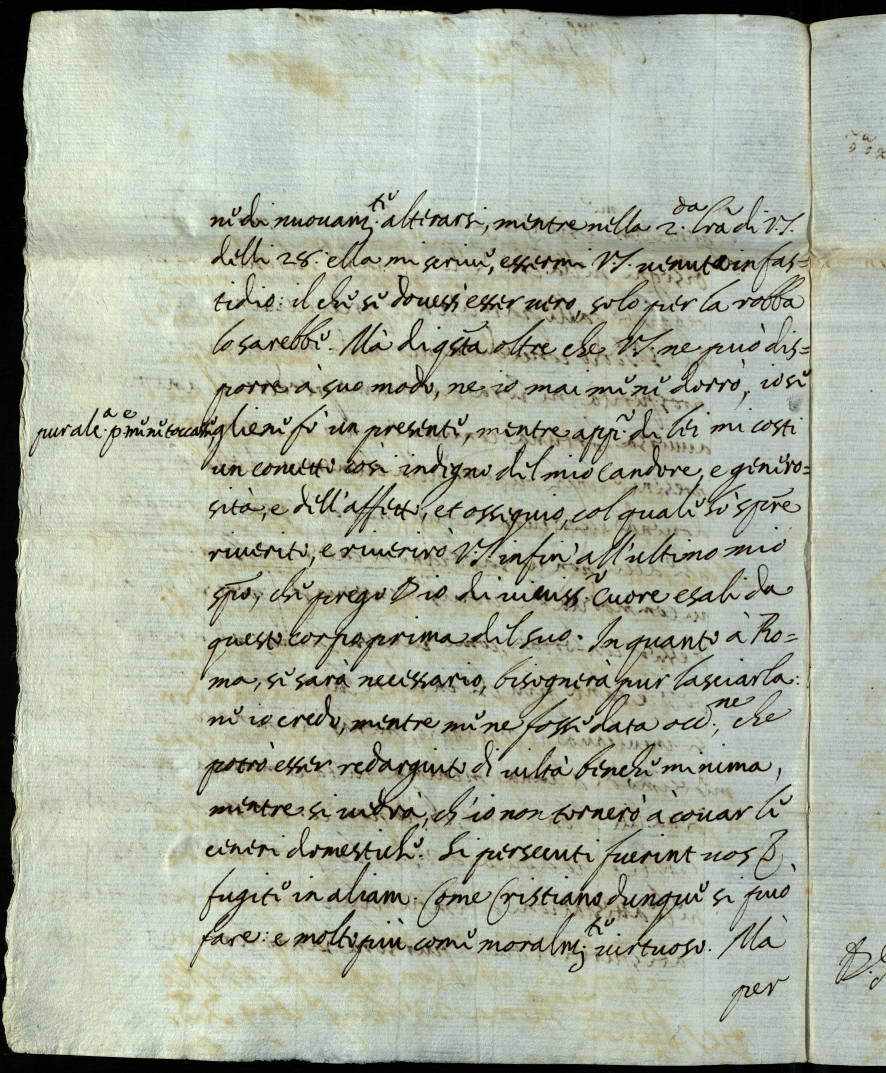 ne di nuovam.te alterarsi, mentre nella 2.da lrã di V.S.
delli 28. ella mi scrive, essermi V.S. venuta in fas=
tidio: il che se dovess'esser vero, solo per la robba
lo sarebbe. Mà di qsta oltre che V.S. ne può dis=
porre à suo modo, ne io mai me ne dorrò, io se
pur ale.a p.e me ne toccasse
gliene fò un presente, mentre app.o di lei mi costi
un concetto così indegno del mio candore, e genero=
sità, e dell'affetto, et ossequio, col quale hò spre
riverito, e riverirò V.S. infin'all'ultimo mio
spo, che prego Dio di viviss.o cuore esali da
questo corpo prima del suo. In quanto à Ro=
ma, se sarà necessario, bisognerà pur lasciarla:
ne io credo, mentre me ne fosse data occ.ne, che
potrò esser redarguito di viltà benche minima,
mentre si vedrà, ch'io non tornerò a covar le
ceneri domestiche. Si persecuti fuerint vos
fugite in aliam. Come Cristiano dunque si può
fare: e molto più come moralm.te virtuoso. Mà
per